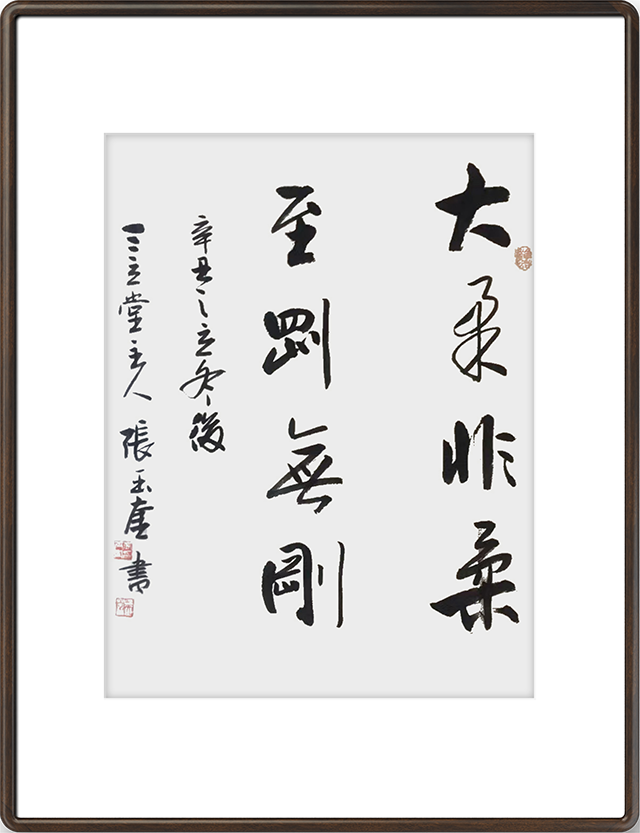 大柔非柔
至剛無剛
辛丑之立冬後
三立堂主人張玉奎書